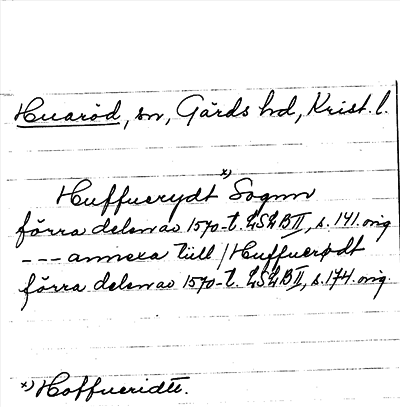 Huaröd, sn, Gärds hd, Krist. l.
x)
Huffuerydt Sognn
förra delen av 1570-t. LSLB II, s. 141. orig
--- annexa till / Huffuerødt
förra delen av 1570-t. LSLB II, s. 174. orig.
x) Hoffueridtt.